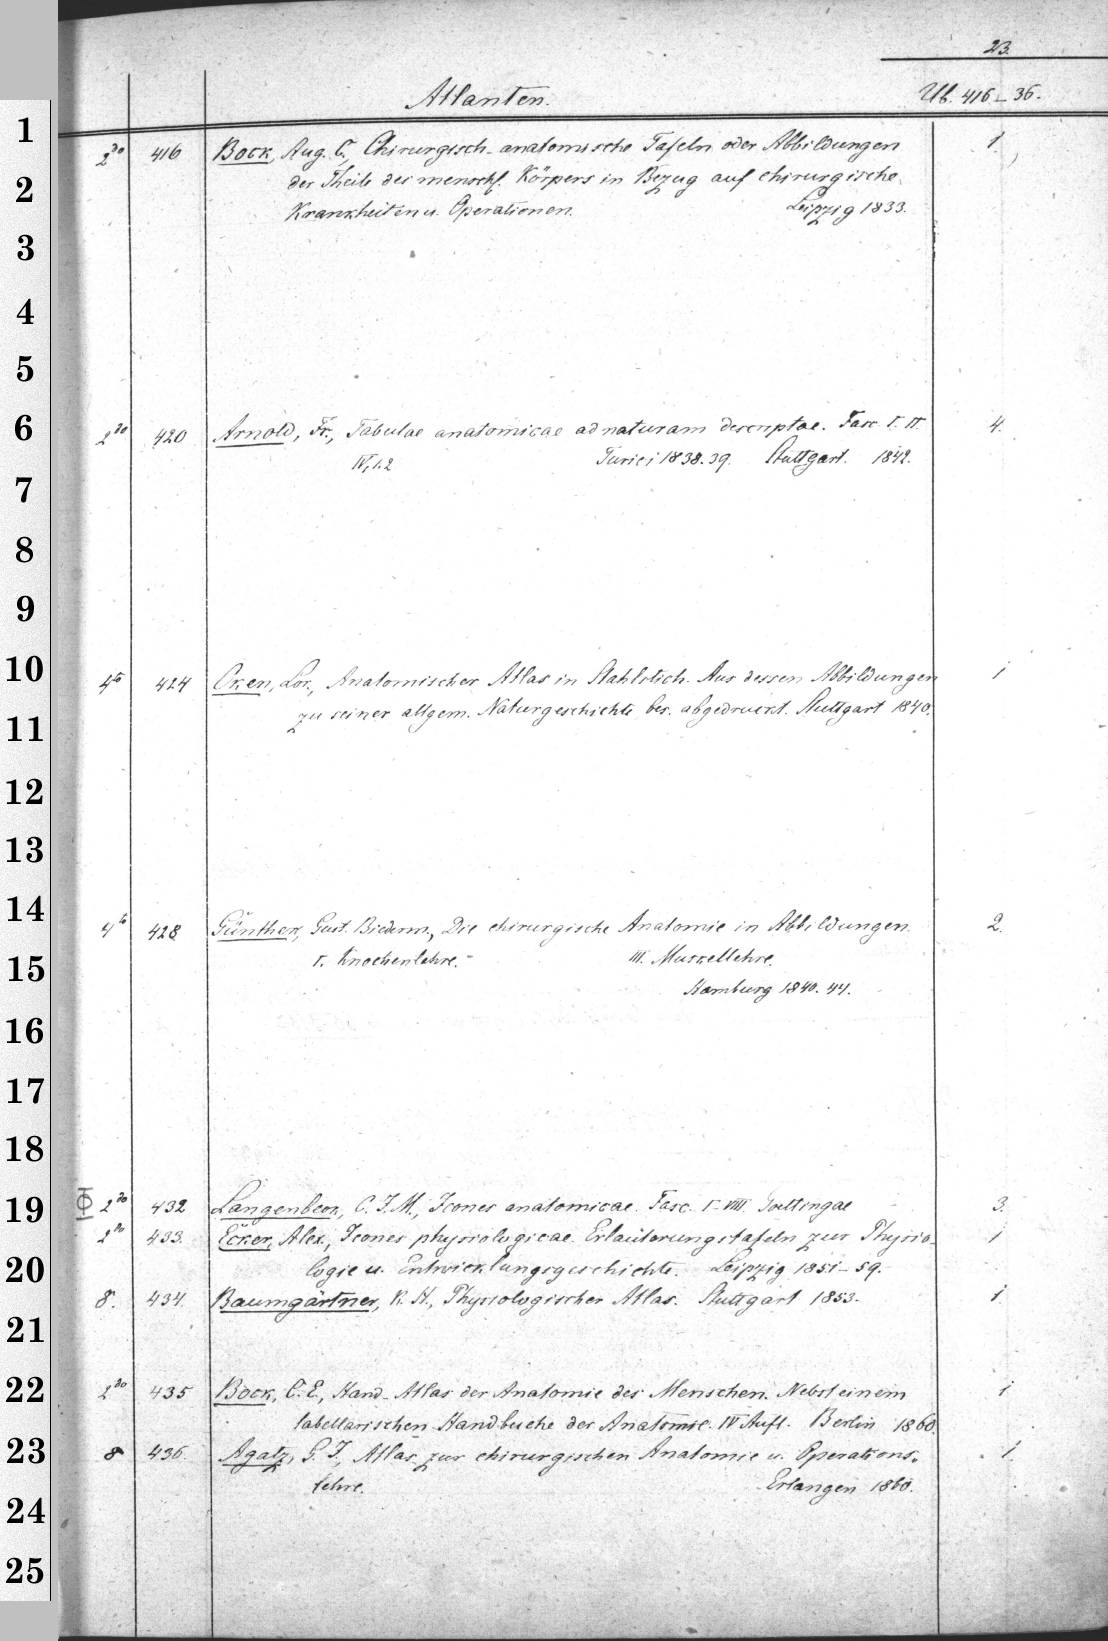 23.
Atlanten.
Ub. 416–36.
1
2do 416 Bock, Aug. C., Chirurgisch-anatomische Tafeln oder Abbildungen 1.
2
der Theile des menschl. Körpers in Bezug auf chirurgische
Krankheiten u. Operationen. Leipzig 1833.
3
4
5
6
2do 420 Arnold, Fr., Tabulae anatomicae ad naturam descriptae. Fasc. I. II 4.
IV, 1.2 Turici 1838. 39. Stuttgart. 1842.
7
8
9
10
4to 424 Oken, Lor., Anatomischer Atlas in Stahlstich. Aus dessen Abbildungen 1
zu seiner allgem. Naturgeschichte bes. abgedruckt. Stuttgart 1840.
11
12
13
14
4to 428 Günther, Gust. Biederm., Die chirurgische Anatomie in Abbildungen. 2.
15
I. Knochenlehre. – III. Muskellehre.
Hamburg 1840. 44.
16
17
18
19
2do 432 Langenbeck, C. J. M., Icones anatomicae. Fasc. I–VIII Goettingae 3.
2do 433. Ecker, Alex., Icones physiologicae. Erläuterungstafeln zur Physio- 1
20
logie u. Entwicklungsgeschichte. Leipzig 1851–59.
8. 434. Baumgärtner, K. H., Physiologischer Atlas. Stuttgart 1853. 1
21
22
2do 435 Bock, C. E., Hand-Atlas der Anatomie des Menschen. Nebst einem 1
tabellarischen Handbuche der Anatomie. IV Aufl. Berlin 1860.
23
8 436. Agatz, G. J., Atlas zur chirurgischen Anatomie u. Operations- 1.
lehre. Erlangen 1860.
24
25